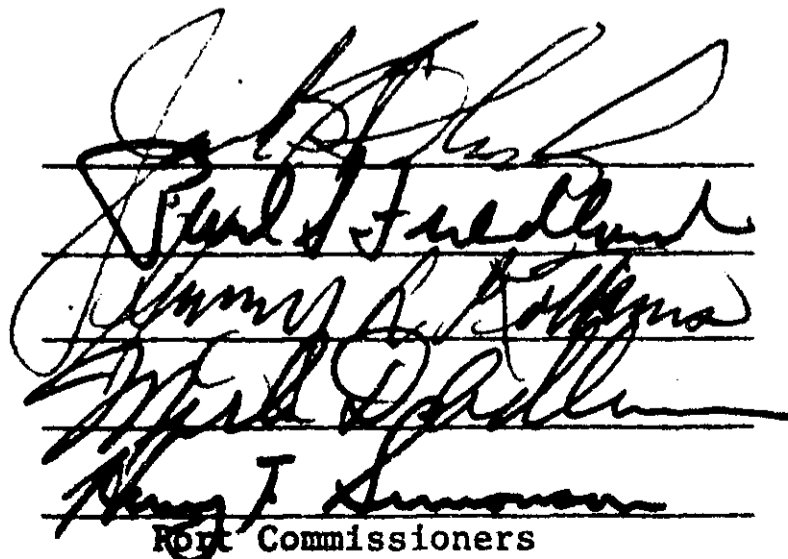 Jack S. Block
Paul S. Friedlund
Henry L. Kotkins
Merle D. Adlum
Henry T. Simonson
Port Commissioners